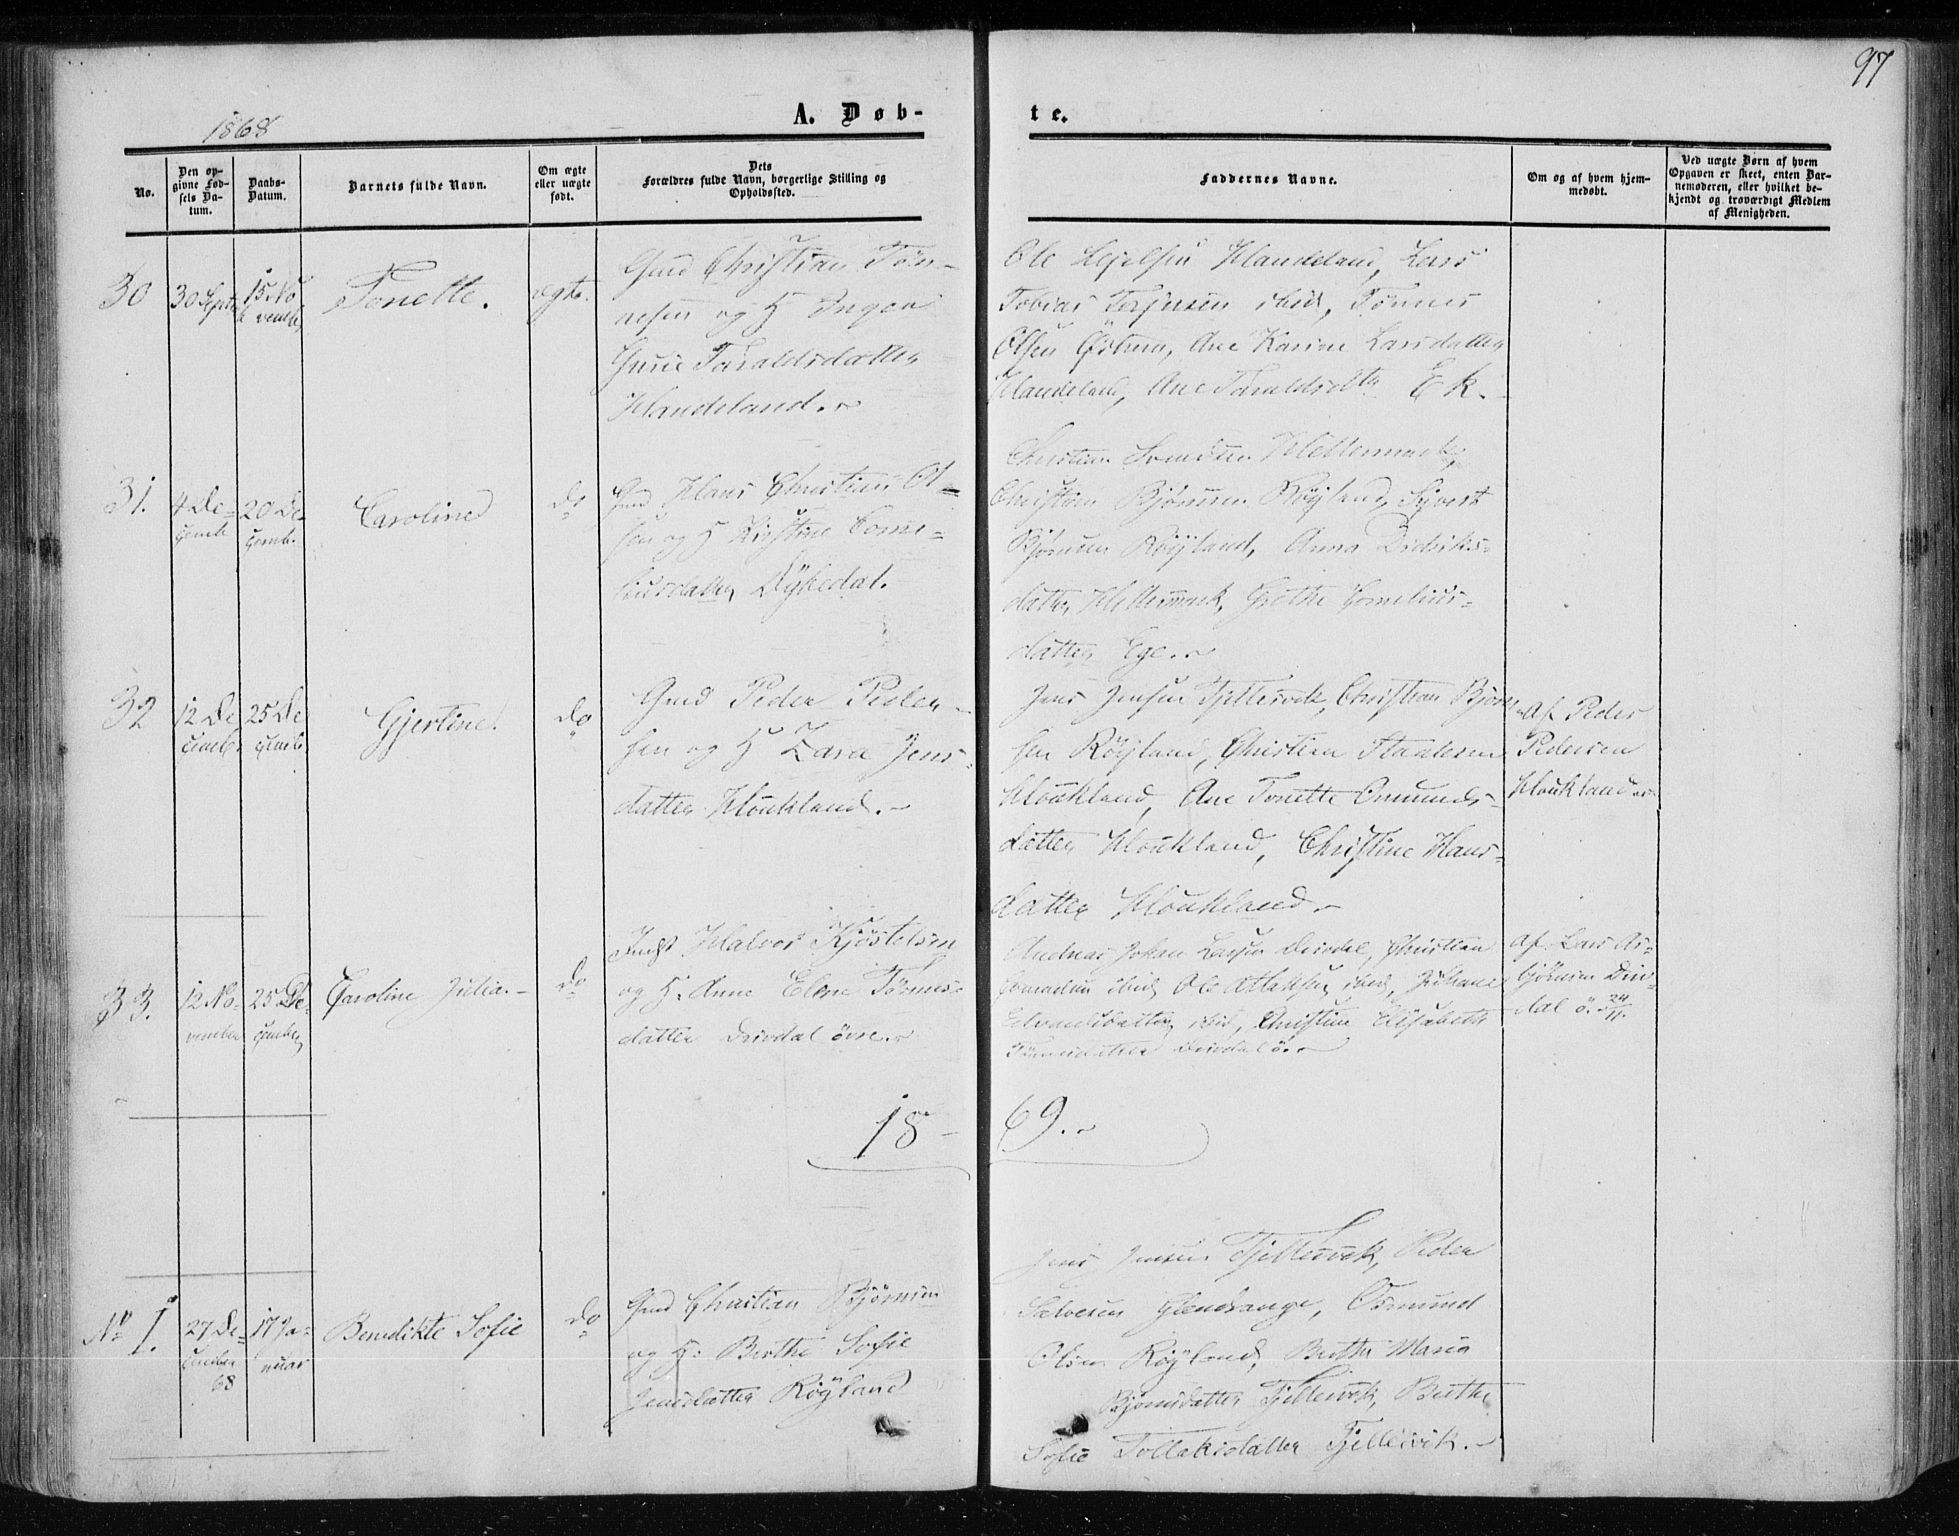 97
1868
A. Døb-
te.
No.
Den opgivne Fødsels Datum.
Daabs-Datum.
Barnets fulde Navn.
Om ægte eller uægte født.
Dets Forældres fulde Navn, borgerlige Stilling og Opholdssted.
Faddernes Navne.
Om og af hvem hjemmedøbt.
Ved uægte Børn af hvem Opgaven er skeet, enten Barnemoderen, eller hvilket bekjendt og troværdigt Medlem af Menigheden.
30
30 Septr
15 No
vembr
Tonette.
ægte.
Gmd Christian Tøn-
nesen og H Inger
Gurie Taraldsdatter
Handeland.
Ole Handeland, Lars
Tobias Terjesen ibid, Tønnes
Olsen Østrem, Ane Karine Larsdatter
Handeland, Ane Taraldsdtr Ek.
31.
4 De-
cemb
20 De-
cemb.
Caroline
do
Gmd Hans Christian Ol-
sen og H Kirstine Corne-
liusdatter Dybedal.
Christian Svendsen Hellermark,
Christian Bjørnsen Røyland, Syvert
Bjørnsen Røyland, Anna Didriks-
datter Hellermark, Grethe Cornelius-
datter Ege.
32
12 De
cemb.
25 De
cemb.
Gjertine.
do
Gmd Peder Peder-
sen og H Zara Jens-
datter Houkland.
Jens Jensen Fjellesvik, Christian Bjørn-
sen Røyland, Christian Staalesen
Houkland, Ane Tonette Omunds-
datter Houkland, Christine Hans-
datter Houkland.
Af Peder
Pedersen
Houkland
33.
12 No-
vember
25 De-
cember
Caroline Julia.
do
Indst Halvor Kjøstelsen
og H. Anne Elene Tønnes-
datter Dirdal øvre.
Andreas Johan Larsen Dirdal, Christian
ibid, Ole Atlaksen ibid, Juliane
datter ibid, Christine Elisabeth
Tønnesdatter Dirdal ø.
Af Lars As-
bjørnsen Dir-
dal ø. 24/11.
18-
69.
No 1.
27 De-
cember
68
17 Ja-
nuar
Benedikte Sofie
do
Gmd Christian Bjørnsen
og H. Berthe Sofie
Jensdatter Røyland
Jens Jensen Fjellesvik, Peder
Salvesen Glendrange, Osmund
Olsen Røyland, Berthe Maria
Bjørnsdatter Fjellesvik, Berthe
Sofie Tollaksdatter Fjellesvik.